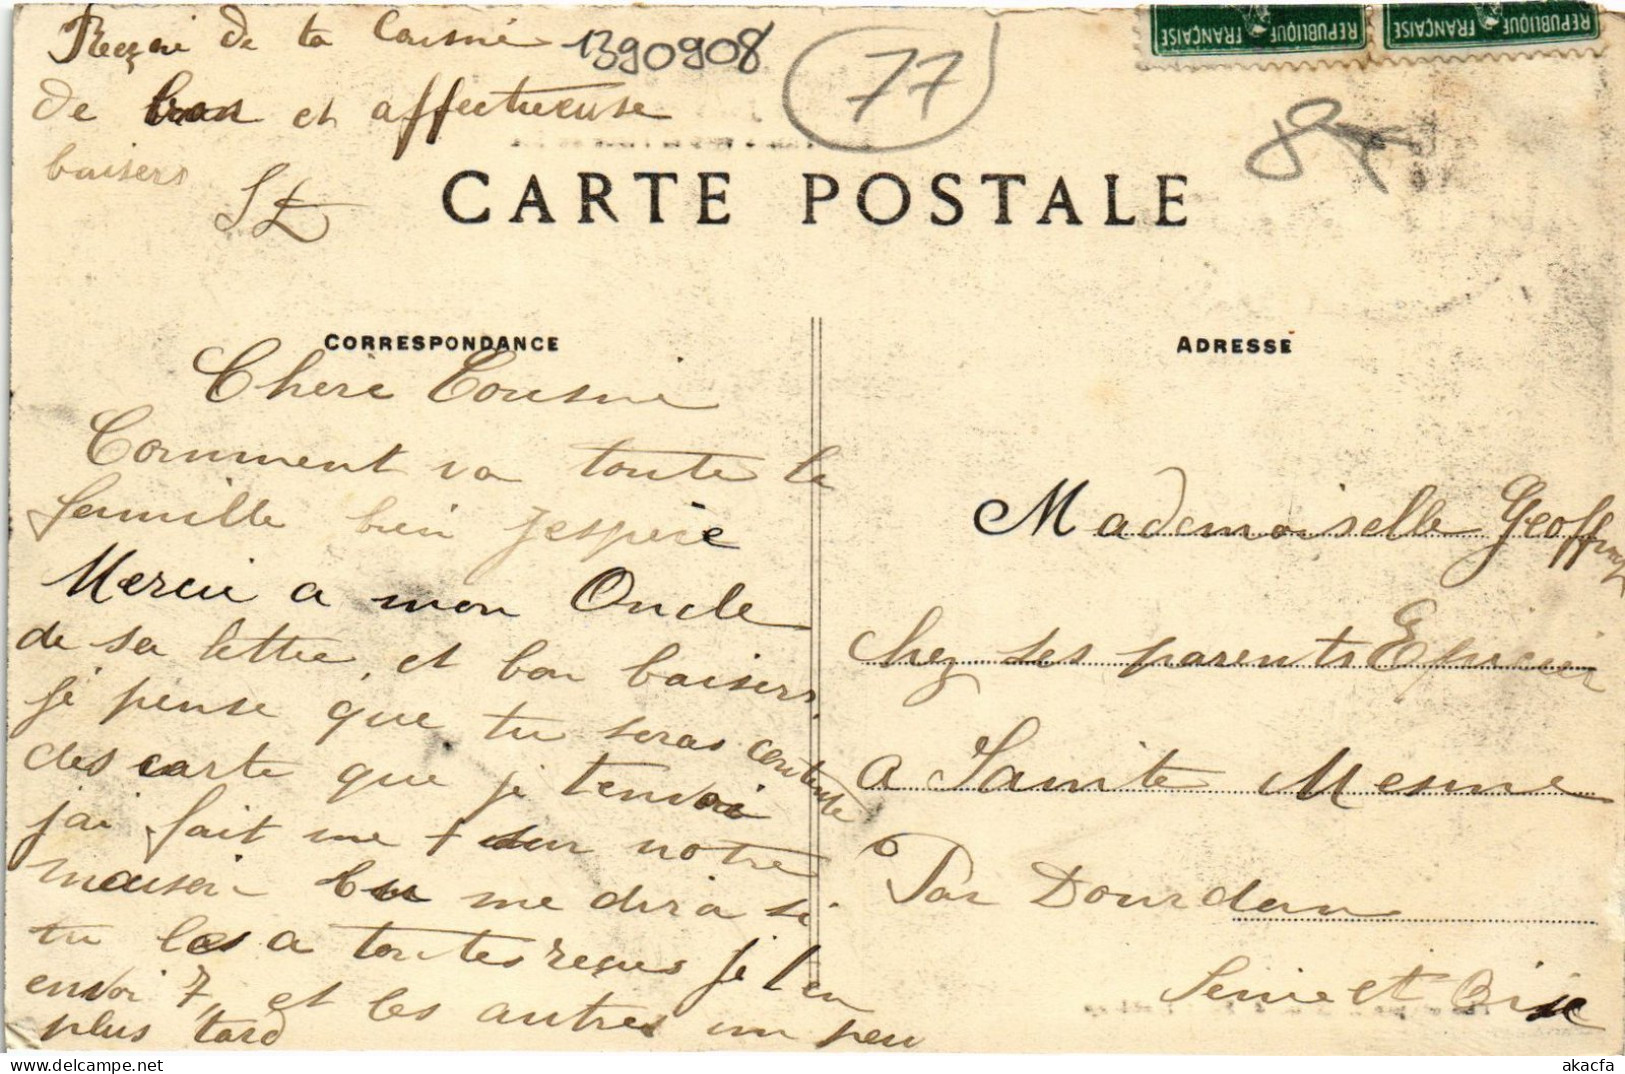 Reçoi de ta Cousine
de bon et affectueuse
baisers
1390908
77
REPUBLIQUE FRANÇAISE
REPUBLIQUE FRANÇAISE
CARTE POSTALE
CORRESPONDANCE
Chère Cousine
Comment va toute la
famille bien j'espère
Mercie a mon Oncle
de sa lettre, et bon baisers
je pense que tu seras contente
des carte que je tenvoi
jai fait une + sur notre
maison tu me dira si
tu les a toutes reçues je t'en
envoi 7, et les autres un peu
plus tard
ADRESSE
Mademoiselle Geoffroy
chez ses parents Epicier
a Sainte Mesme
Par Dourdan
Seine et Oise
akacfa